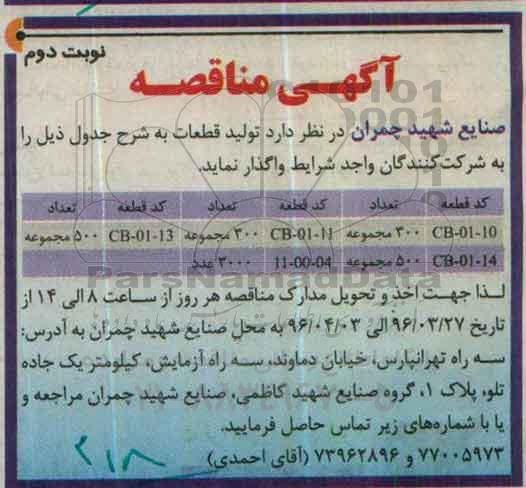 نوبت دوم
آگهـی مناقصـه
صنایع شهید چمران در نظر دارد تولید قطعات به شرح جدول ذیل را
به شرکت‌کنندگان واجد شرایط واگذار نماید.
کد قطعه تعداد کد قطعه تعداد کد قطعه تعداد
CB-01-10 ۳۰۰ مجموعه CB-01-11 ۳۰۰ مجموعه CB-01-13 ۵۰۰ مجموعه
CB-01-14 ۵۰۰ مجموعه 11-00-04 ۳۰۰۰ عدد
لـذا جهـت اخذ و تحویل مدارک مناقصه هر روز از ساعت ۸ الی ۱۴ از
تاریخ ۹۶/۰۳/۲۷ الی ۹۶/۰۴/۰۳ به محل صنایع شهید چمران به آدرس:
سـه راه تهرانپارس، خیابان دماوند، سـه راه آزمایش، کیلومتر یک جاده
تلو، پلاک ۱، گروه صنایع شهید کاظمی، صنایع شهید چمران مراجعه و
یا با شماره‌های زیر تماس حاصل فرمایید.
۷۷۰۰۵۹۷۳ و ۷۳۹۶۲۸۹۶ (آقای احمدی)
۲۱۸
ParsNamadData